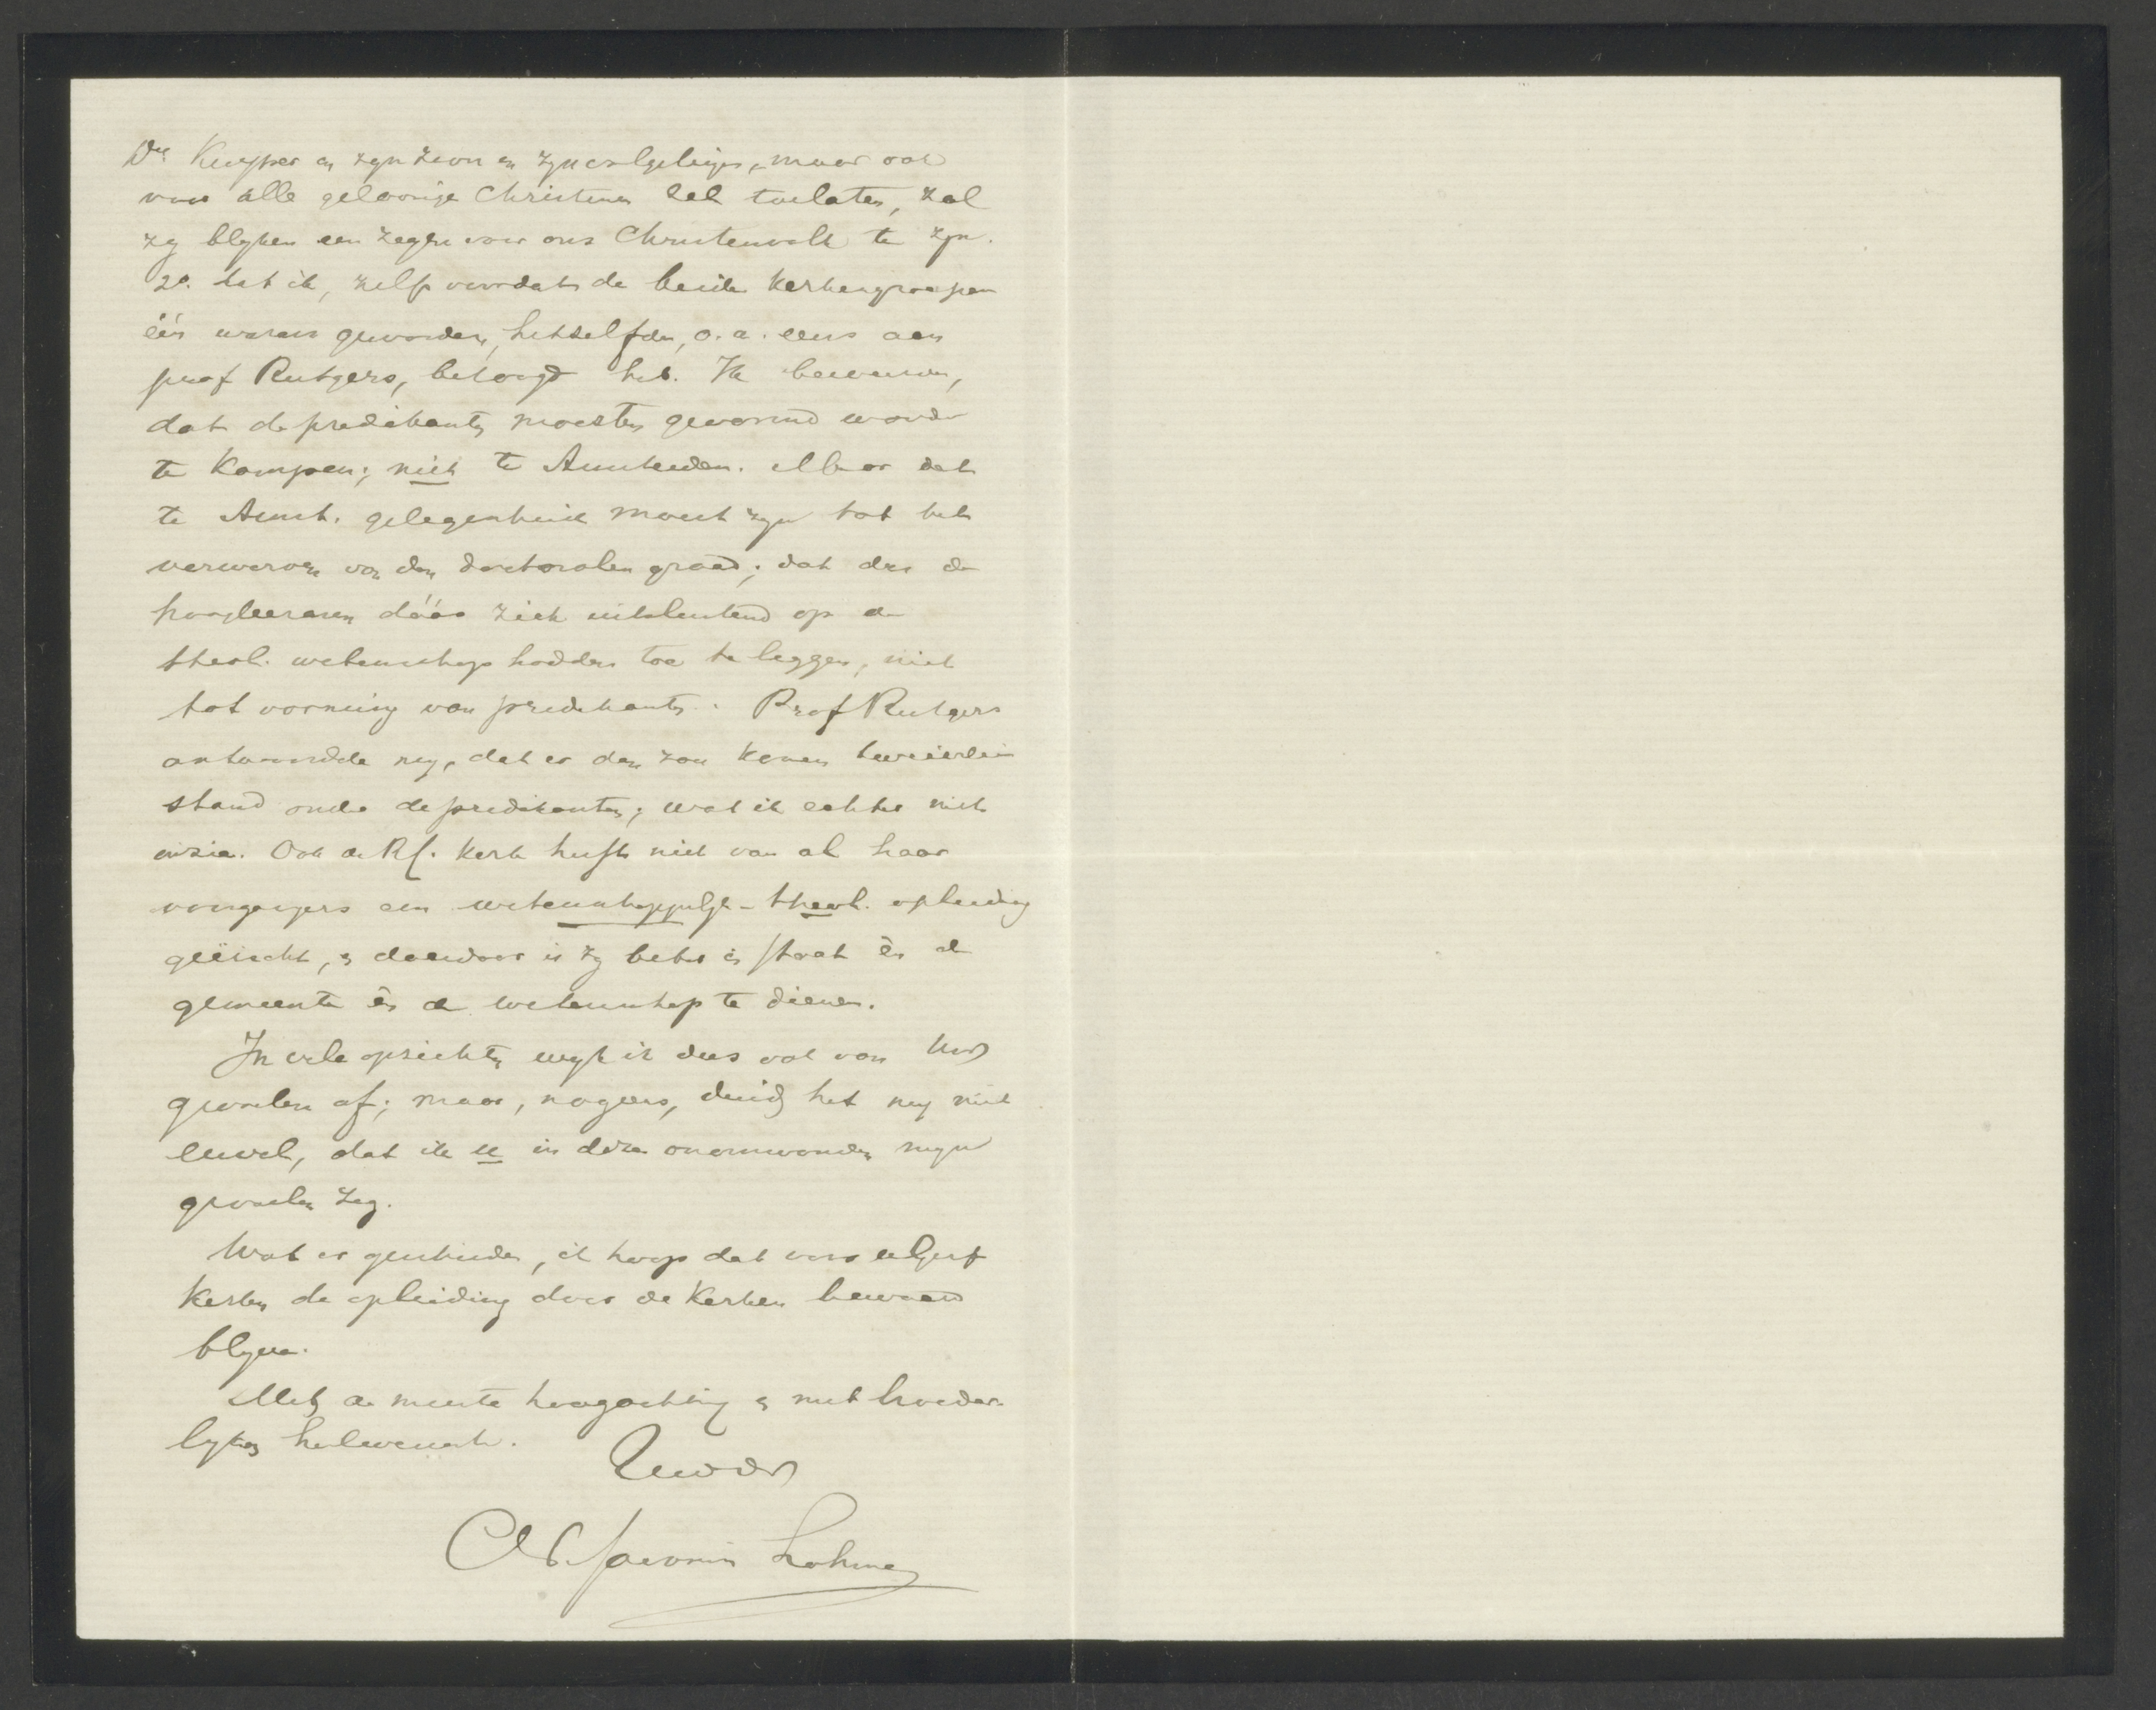 Dr. Kuyper en zijn zoon en zijn volgelingen, maar ook
voor alle geloovige Christenen zal toelaten, zal
zij blijken een zegen voor ons Christenvolk te zijn.
2o. dat ik, zelfs voordat de beide kerkengroepen
één waren geworden, hetzelfde, o.a. eens aan
prof Rutgers, betoogd heb. Ik beweerde,
dat de predikanten moesten gevormd worden
te Kampen; niet te Amsterdam. Maar dat
te Amst. gelegenheid moest zijn tot het
verwerven van den doctoralen graad; dat dus de
hoogleeraren dáár zich uitsluitend op de
theol. wetenschap hadden toe te leggen, niet
tot vorming van predikanten. Prof Rutgers
antwoordde mij, dat er dan zou komen tweeërlei
stand onder de predikanten; wat ik echter niet
inzie. Ook de RC. Kerk heeft niet van al haar
voorgangers een wetenschappelijk-theol. opleiding
geëischt, en daardoor is zij beter in staat èn de
gemeente èn de wetenschap te dienen.
In vele opzichten wijk ik dus ook van Uw
gevoelen af; maar, nogeens, duid het mij niet
euvel, dat ik u in deze onomwonden mijn
gevoelen zeg.
Wat er geschiede, ik hoop dat voor de Geref
Kerken de opleiding door de Kerken bewaard
blijve.
Met de meeste hoogachting en met broeder-
lijken heilwensch.
Uw dr
AF de Savornin Lohman